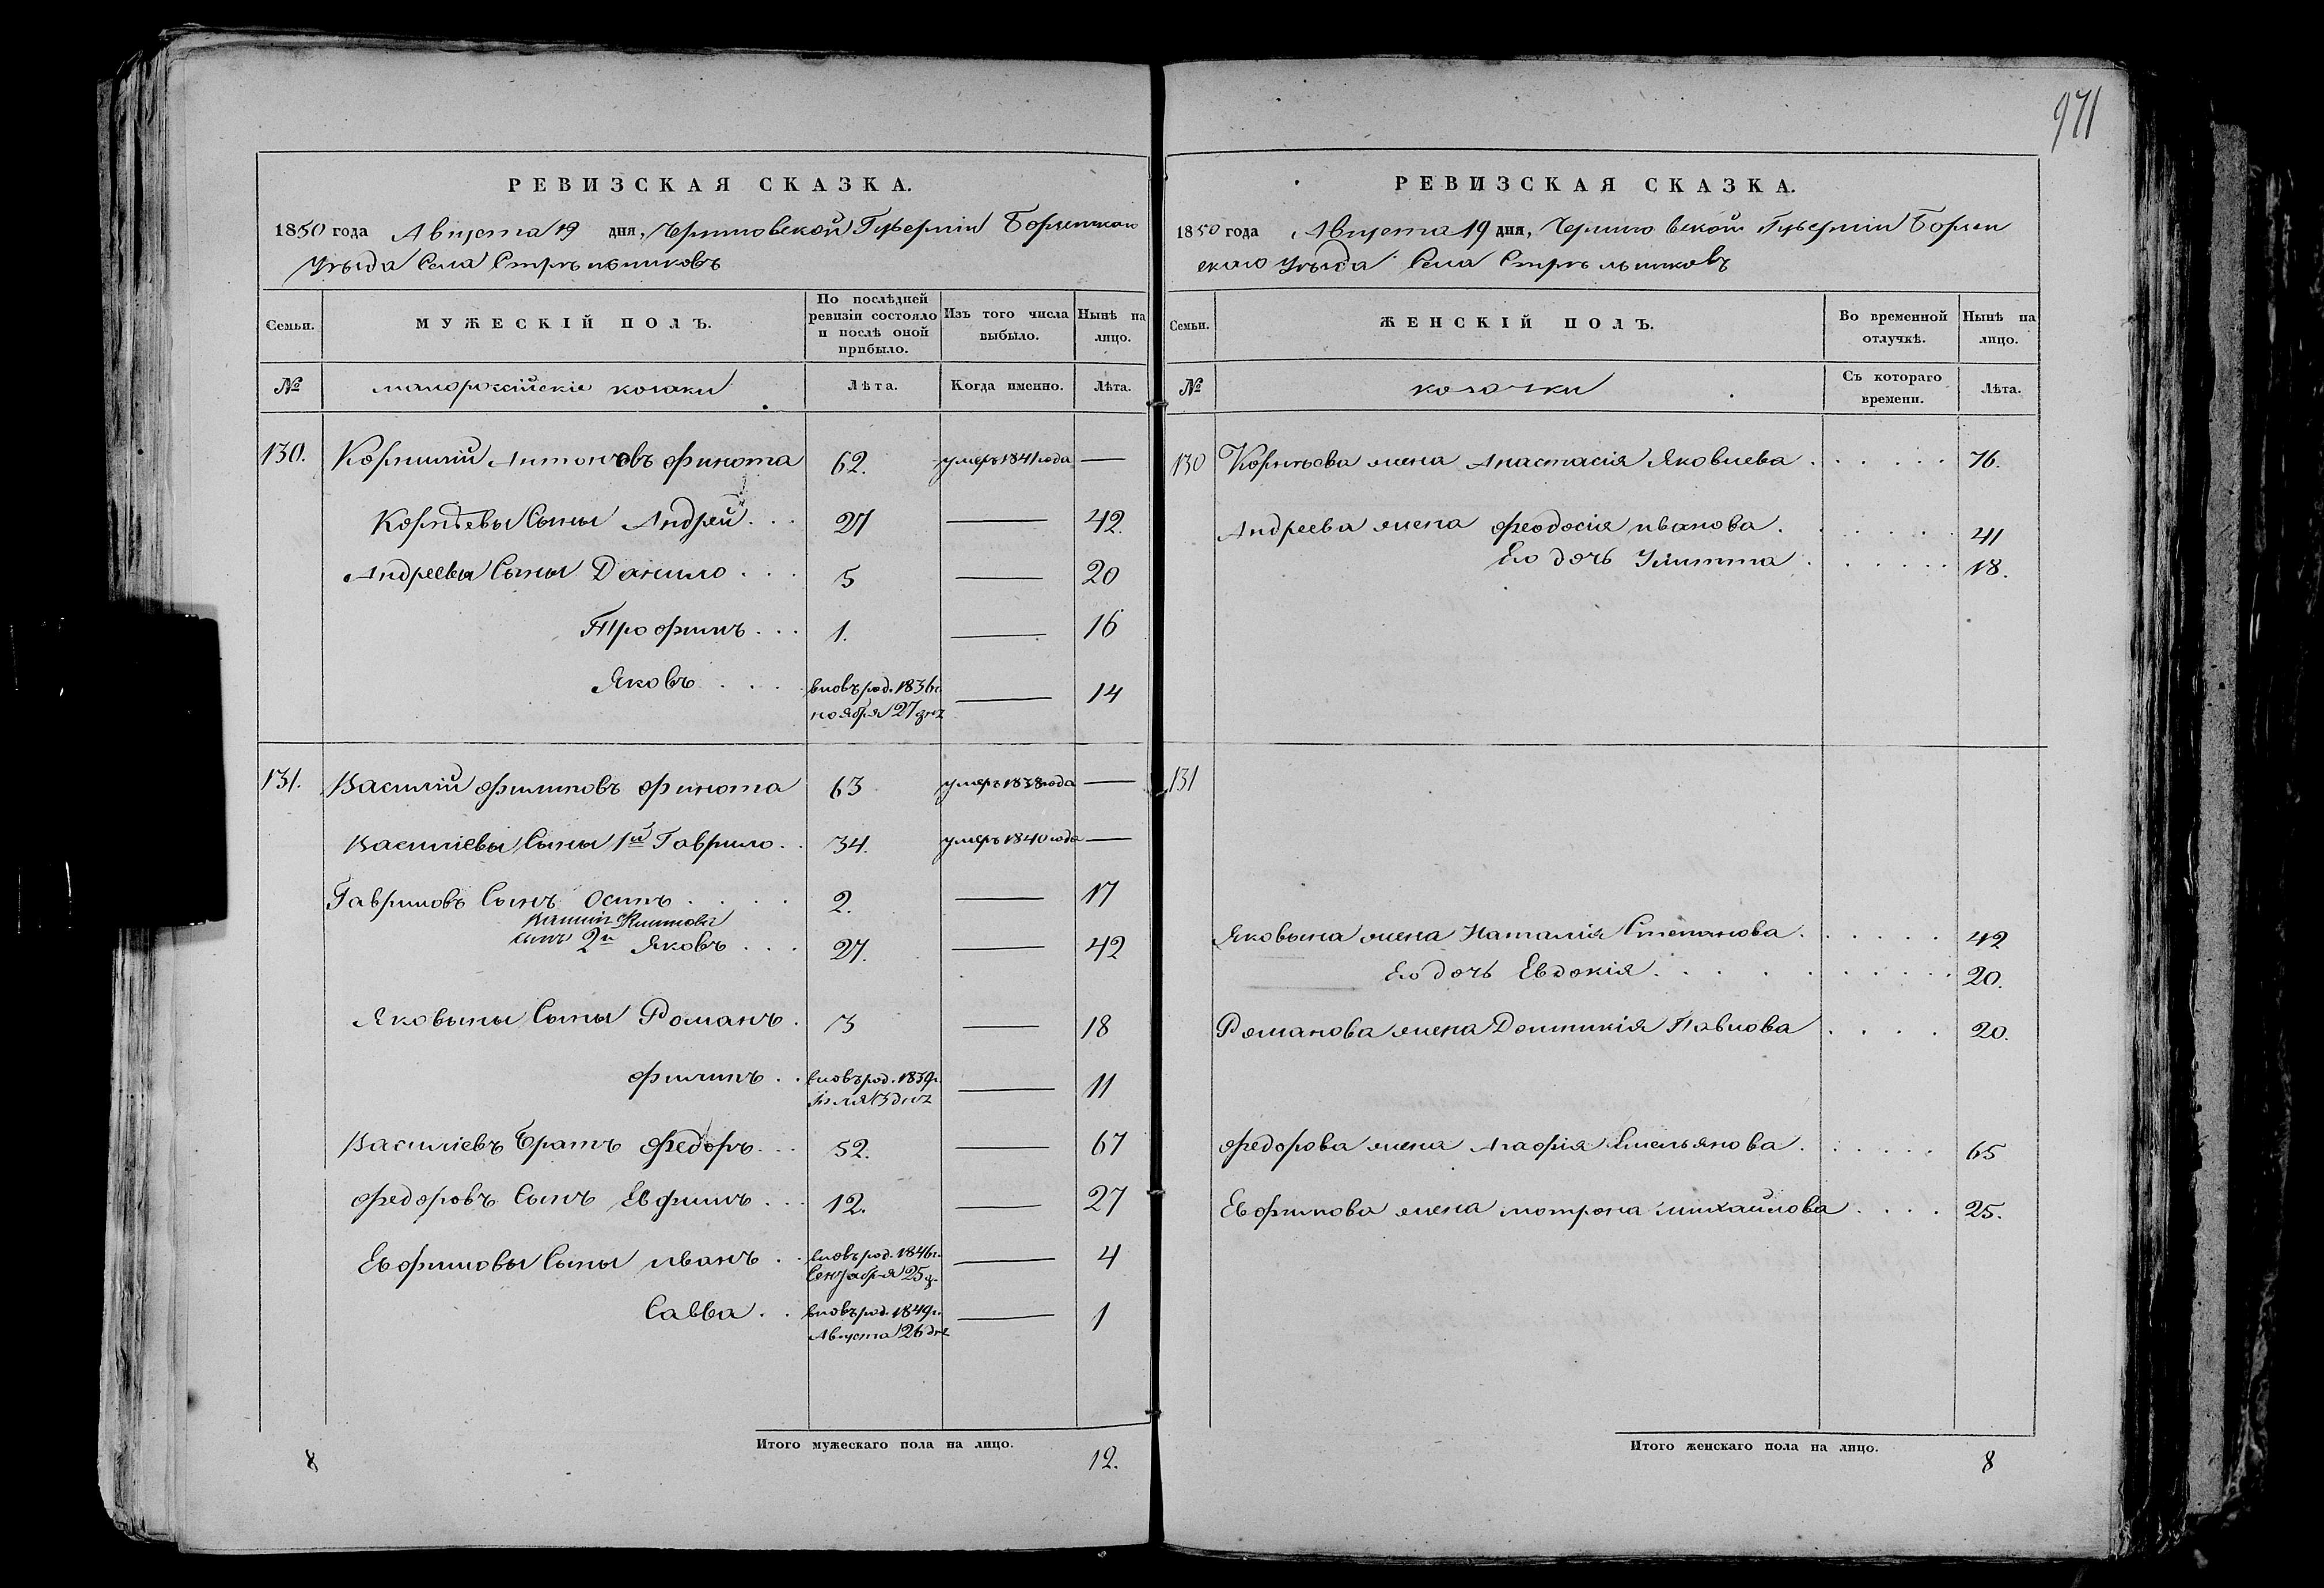 971
РЕВИЗСКАЯ СКАЗКА.
1850 года Августа 19 дня, Черниговской Губерніи Борзенскаго
Уѣзда Села Стрѣльниковъ
Семьи. МУЖЕСКІЙ ПОЛЪ. По послѣдней ревизіи состояло и послѣ оной прибыло. Изъ того числа выбыло. Нынѣ на лицо.
№ малороссійскіе козаки Лѣта. Когда именно. Лѣта.
130. Корнилій Антоновъ Финота 62. умеръ 1841 года —
Корнѣевы Сыны Андрей 27 — 42.
Андреевы Сыны Данило 5 — 20
Трофимъ 1. — 16
Яковъ вновь род. 1836 г. — 14
ноября 27 дня
131. Василій Филиповъ Финота 63 умеръ 1838 года —
Василіевы Сыны 1й Гаврило 34. умеръ 1840 года —
Гавриловъ Сынъ Осипъ 2. — 17
сынъ 2й Яковъ 27. — 42
Яковины Сыны Романъ 3 — 18
Филипъ вновь род. 1839 г. — 11
Василіевъ Братъ Федоръ 52. — 67
Федоровъ Сынъ Евфимъ 12. — 27
Евфимовы Сыны Иванъ вновь род. 1846 г. — 4
Сентября 25 д.
Савва вновь род. 1849 г. — 1
Августа 26 дня
Итого мужескаго пола на лицо.
8 12.
РЕВИЗСКАЯ СКАЗКА.
1850 года Августа 19 дня, Черниговской Губерніи Борзен
скаго Уѣзда Села Стрѣльниковъ
Семьи. ЖЕНСКІЙ ПОЛЪ. Во временной отлучкѣ. Нынѣ на лицо.
№ козачки Съ котораго времени. Лѣта.
130 Корнѣева жена Анастасія Яковлева 76.
Андреева жена Феодосія Иванова 41
Его дочь Улитта 18.
131
Яковина жена Наталія Степанова 42
Его дочь Евдокія 20.
Романова жена Домникія Павлова 20.
Федорова жена Агафія Емельянова 65
Евфимова жена Мотрона Михайлова 25.
Итого женскаго пола на лицо.
8